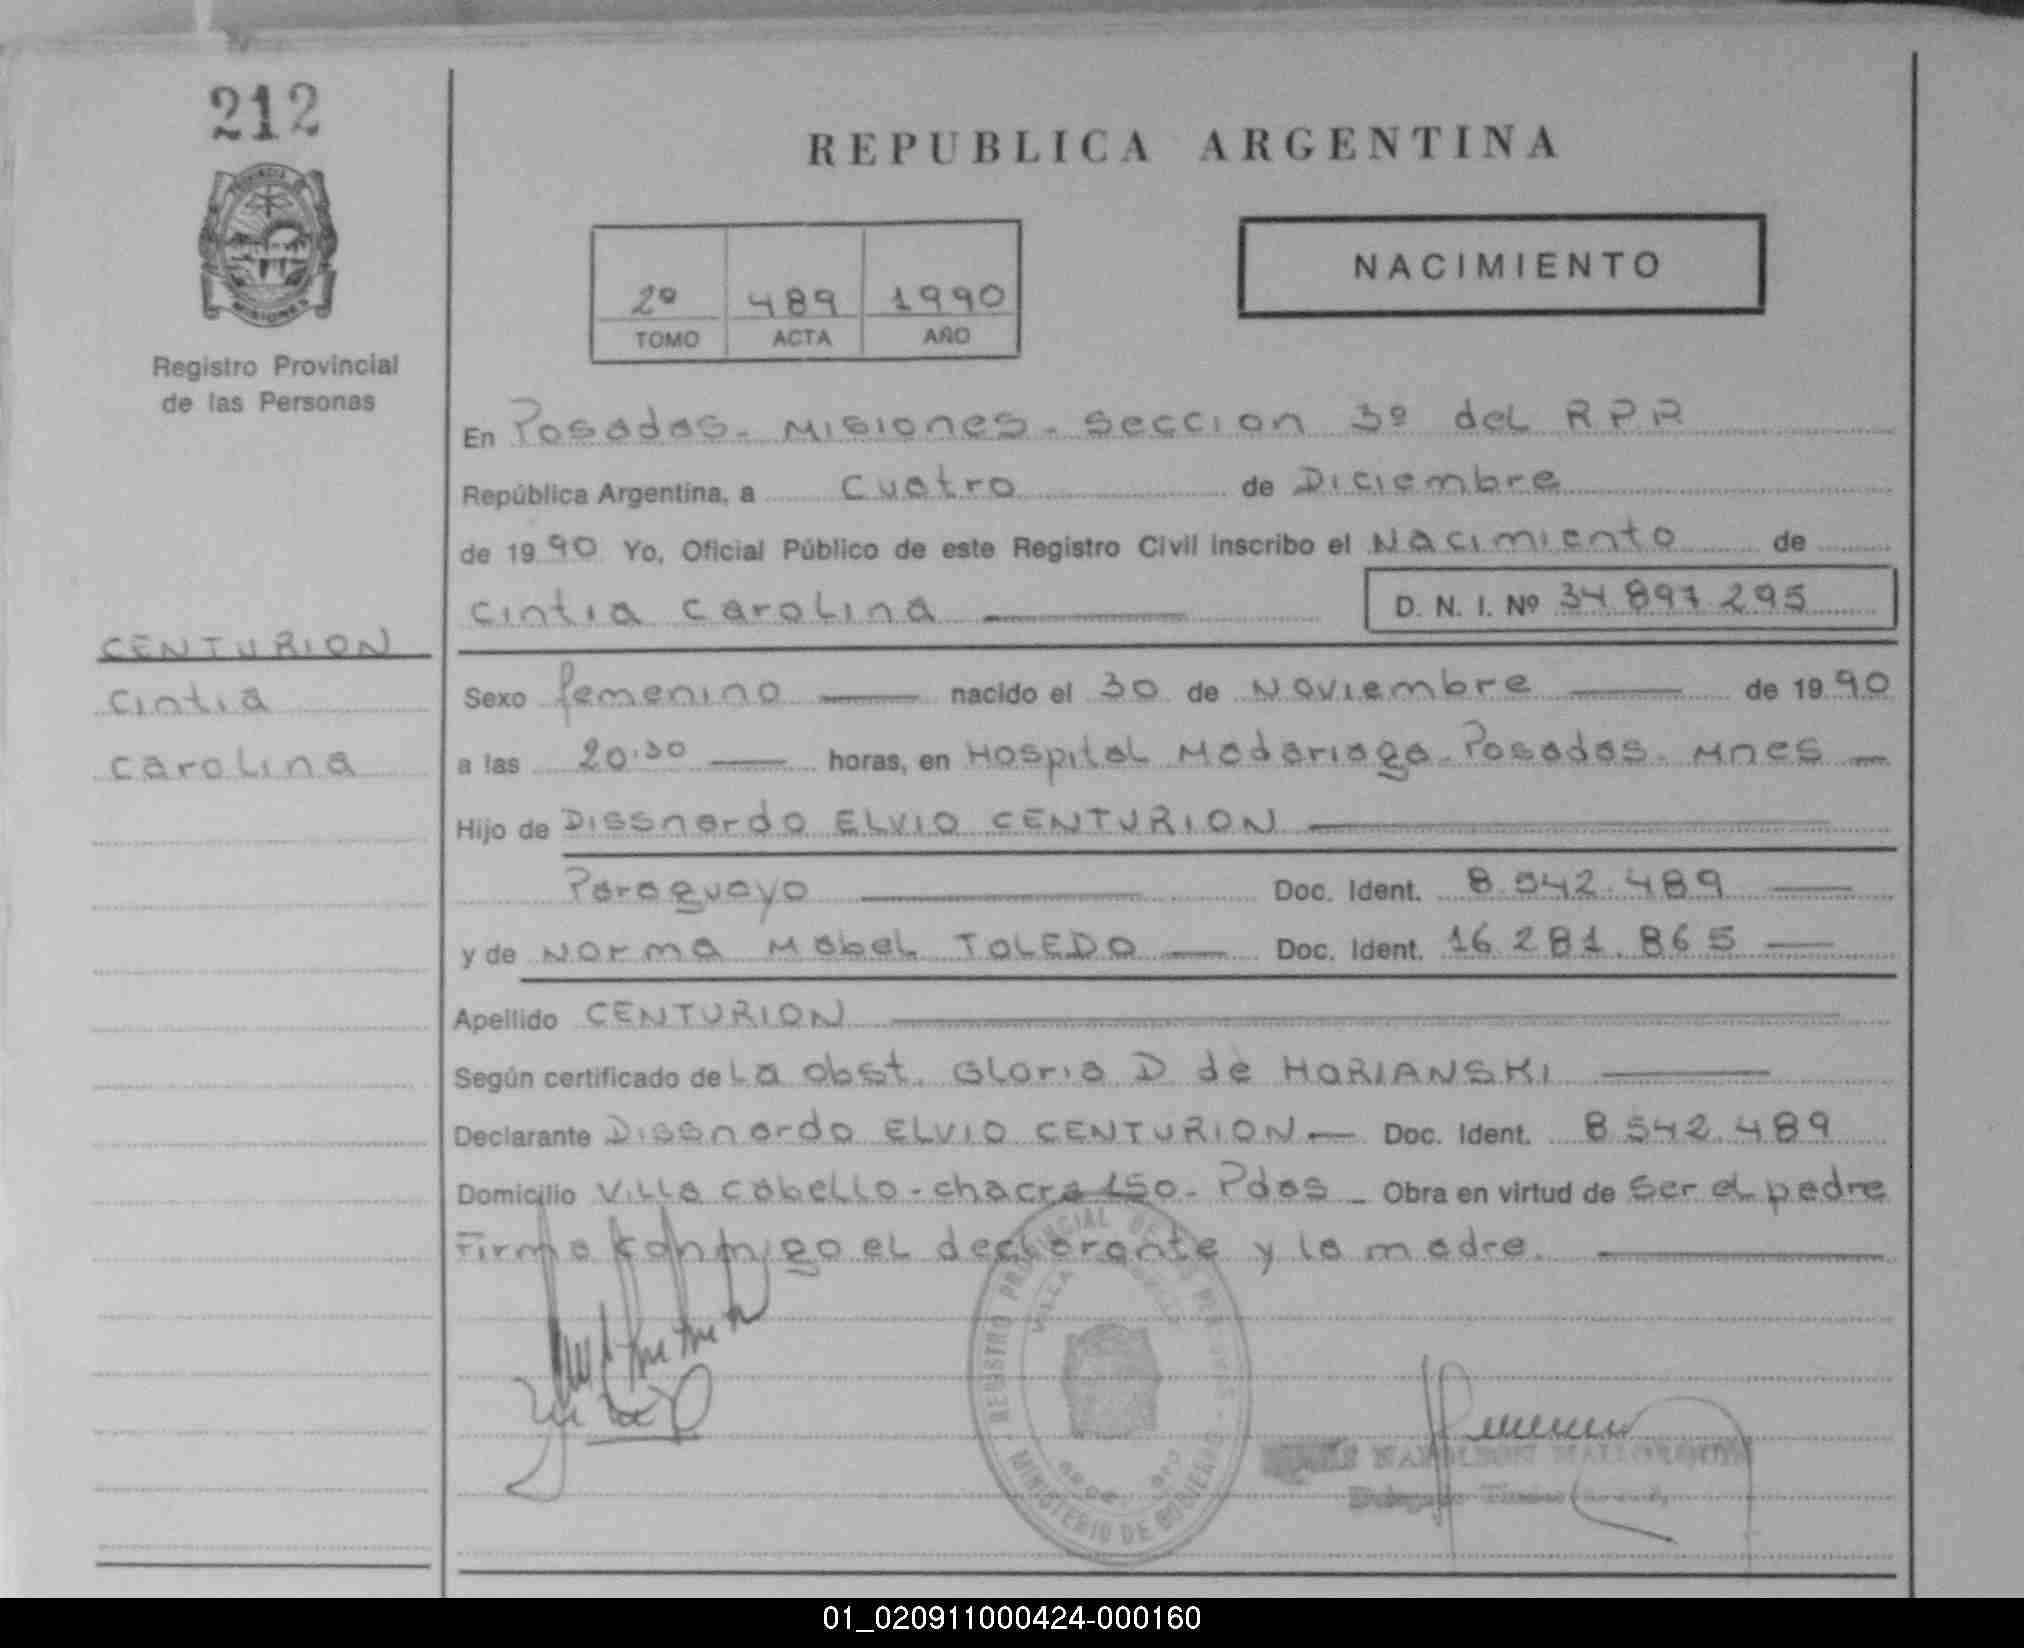 212
REPUBLICA ARGENTINA
PROVINCIA
MISIONES
Registro Provincial
de las Personas
2º 489 1990
TOMO ACTA AÑO
NACIMIENTO
En Posadas - Misiones - Seccion 3º del R P P
República Argentina, a cuatro de Diciembre
de 1990 Yo, Oficial Público de este Registro Civil inscribo el Nacimiento de
Cintia Carolina D. N. I. Nº 34 897 295
CENTURION
Cintia
Carolina
Sexo femenino nacido el 30 de Noviembre de 1990
a las 20:30 horas, en Hospital Madariaga - Posadas - Mnes
Hijo de Dissnardo ELVIO CENTURION
Paraguayo Doc. Ident. 8.542.489
y de Norma Mabel TOLEDO Doc. Ident. 16.281.865
Apellido CENTURION
Según certificado de La obst. Gloria D de HORIANSKI
Declarante Dissnardo ELVIO CENTURION Doc. Ident. 8.542.489
Domicilio Villa Cabello - chacra 150 - Pdas - Obra en virtud de ser el padre
Firma conmigo el declarante y la madre.
REGISTRO PROVINCIAL DE LAS PERSONAS
MINISTERIO DE GOBIERNO
VILLA CABELLO
NAPOLEON
01_020911000424-000160